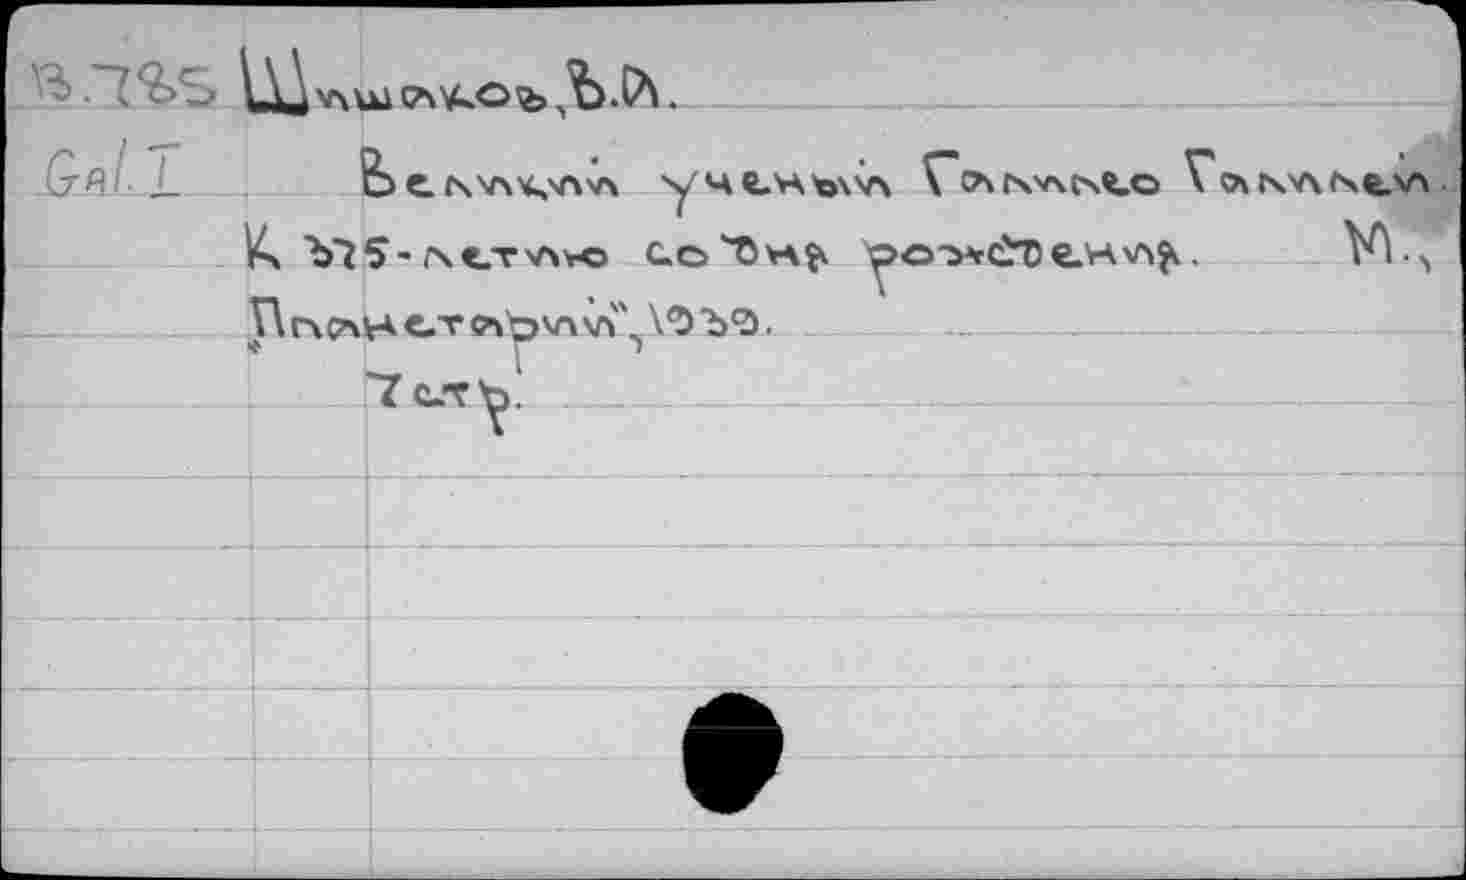 В.785 Шишаков, В.А.
Gal. I Великий учёный Галилео Галилей.
К 375-летию со дня рождения. М.,
"Планетарий", 1939.
7 стр.